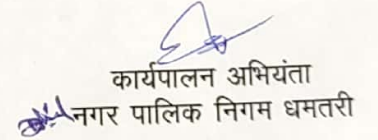 कार्यपालन अभियंता
नगर पालिक निगम धमतरी